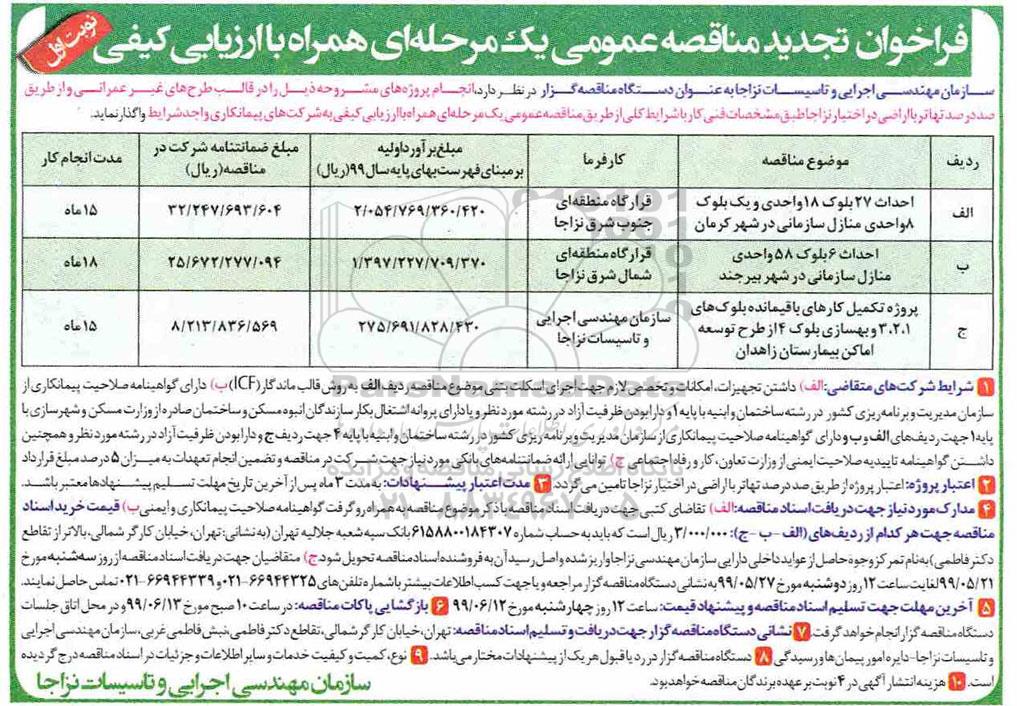 فراخوان تجدید مناقصه عمومی یک مرحله‌ای همراه با ارزیابی کیفی
نوبت اول
سازمان مهندسی اجرایی و تاسیسات نزاجا به عنوان دستگاه مناقصه‌گزار در نظر دارد، انجام پروژه‌های مشروحه ذیل را در قالب طرح‌های غیر عمرانی و از طریق
صد درصد تهاتر با اراضی در اختیار نزاجا طبق مشخصات فنی کار با شرایط کلی از طریق مناقصه عمومی یک مرحله‌ای همراه با ارزیابی کیفی به شرکت‌های پیمانکاری واجد شرایط واگذار نماید.
ردیف موضوع مناقصه کارفرما مبلغ برآورد اولیه بر مبنای فهرست بهای پایه سال ۹۹ (ریال) مبلغ ضمانتنامه شرکت در مناقصه (ریال) مدت انجام کار
الف احداث ۲۷ بلوک ۱۸ واحدی و یک بلوک ۸ واحدی منازل سازمانی در شهر کرمان قرارگاه منطقه‌ای جنوب شرق نزاجا ۲/۰۵۴/۷۶۹/۳۶۰/۴۲۰ ۳۲/۲۴۷/۶۹۳/۶۰۴ ۱۵ ماه
ب احداث ۶ بلوک ۵۸ واحدی منازل سازمانی در شهر بیرجند قرارگاه منطقه‌ای شمال شرق نزاجا ۱/۳۹۷/۲۲۷/۷۰۹/۳۷۰ ۲۵/۶۷۲/۲۷۷/۰۹۴ ۱۸ ماه
ج پروژه تکمیل کارهای باقیمانده بلوک‌های ۳،۲،۱ و بهسازی بلوک ۴ از طرح توسعه اماکن بیمارستان زاهدان سازمان مهندسی اجرایی و تاسیسات نزاجا ۲۷۵/۶۹۱/۸۲۸/۴۳۰ ۸/۲۱۳/۸۳۶/۵۶۹ ۱۵ ماه
۱ شرایط شرکت‌های متقاضی: الف) داشتن تجهیزات، امکانات و تخصص لازم جهت اجرای اسکلت بتنی موضوع مناقصه ردیف الف به روش قالب ماندگار (ICF) ب) دارای گواهینامه صلاحیت پیمانکاری از
سازمان مدیریت و برنامه‌ریزی کشور در رشته ساختمان و ابنیه با پایه ۱ و دارا بودن ظرفیت آزاد در رشته مورد نظر و یا دارای پروانه اشتغال بکار سازندگان انبوه مسکن و ساختمان صادره از وزارت مسکن و شهرسازی با
پایه ۱ جهت ردیف‌های الف و ب و دارای گواهینامه صلاحیت پیمانکاری از سازمان مدیریت و برنامه‌ریزی کشور در رشته ساختمان و ابنیه با پایه ۴ جهت ردیف ج و دارا بودن ظرفیت آزاد در رشته مورد نظر و همچنین
داشتن گواهینامه تاییدیه صلاحیت ایمنی از وزارت تعاون، کار و رفاه اجتماعی ج) توانایی ارائه ضمانتنامه‌های بانکی مورد نیاز جهت شرکت در مناقصه و تضمین انجام تعهدات به میزان ۵ درصد مبلغ قرارداد
۲ اعتبار پروژه: اعتبار پروژه از طریق صد درصد تهاتر با اراضی در اختیار نزاجا تامین می‌گردد. ۳ مدت اعتبار پیشنهادات: به مدت ۳ ماه پس از آخرین تاریخ مهلت تسلیم پیشنهادها معتبر باشد.
۴ مدارک مورد نیاز جهت دریافت اسناد مناقصه: الف) تقاضای کتبی جهت دریافت اسناد مناقصه با ذکر موضوع مناقصه به همراه رو گرفت گواهینامه صلاحیت پیمانکاری و ایمنی ب) قیمت خرید اسناد
مناقصه جهت هر کدام از ردیف‌های (الف - ب - ج): ۳/۰۰۰/۰۰۰ ریال است که باید به حساب شماره ۶۱۵۸۸۰۰۱۸۴۳۰۷ بانک سپه شعبه جلالیه تهران (به نشانی: تهران، خیابان کارگر شمالی، بالاتر از تقاطع
دکتر فاطمی) به نام تمرکز وجوه حاصل از عواید داخلی دارایی سازمان مهندسی نزاجا واریز شده و اصل رسید آن به فروشنده اسناد مناقصه تحویل شود ج) متقاضیان جهت دریافت اسناد مناقصه از روز سه‌شنبه مورخ
۹۹/۰۵/۲۱ لغایت ساعت ۱۲ روز دوشنبه مورخ ۹۹/۰۵/۲۷ به نشانی دستگاه مناقصه گزار مراجعه و یا جهت کسب اطلاعات بیشتر با شماره تلفن‌های ۶۶۹۴۴۳۲۵-۰۲۱ و ۶۶۹۴۴۳۳۹-۰۲۱ تماس حاصل نمایند.
۵ آخرین مهلت جهت تسلیم اسناد مناقصه و پیشنهاد قیمت: ساعت ۱۲ روز چهارشنبه مورخ ۹۹/۰۶/۱۲ ۶ بازگشایی پاکات مناقصه: در ساعت ۱۰ صبح مورخ ۹۹/۰۶/۱۳ و در محل اتاق جلسات
دستگاه مناقصه گزار انجام خواهد گرفت. ۷ نشانی دستگاه مناقصه گزار جهت دریافت و تسلیم اسناد مناقصه: تهران، خیابان کارگر شمالی، تقاطع دکتر فاطمی، نبش فاطمی غربی، سازمان مهندسی اجرایی
و تاسیسات نزاجا - دایره امور پیمان‌ها و رسیدگی ۸ دستگاه مناقصه گزار در رد یا قبول هر یک از پیشنهادات مختار می‌باشد. ۹ نوع، کمیت و کیفیت خدمات و سایر اطلاعات و جزئیات در اسناد مناقصه درج گردیده
است. ۱۰ هزینه انتشار آگهی در ۴ نوبت بر عهده برندگان مناقصه خواهد بود.
سازمان مهندسی اجرایی و تاسیسات نزاجا
ParsNamadData
پایگاه اطلاع رسانی مناقصه و مزایده
۰۲۱-۸۸۳۴۹۶۷۰-۵